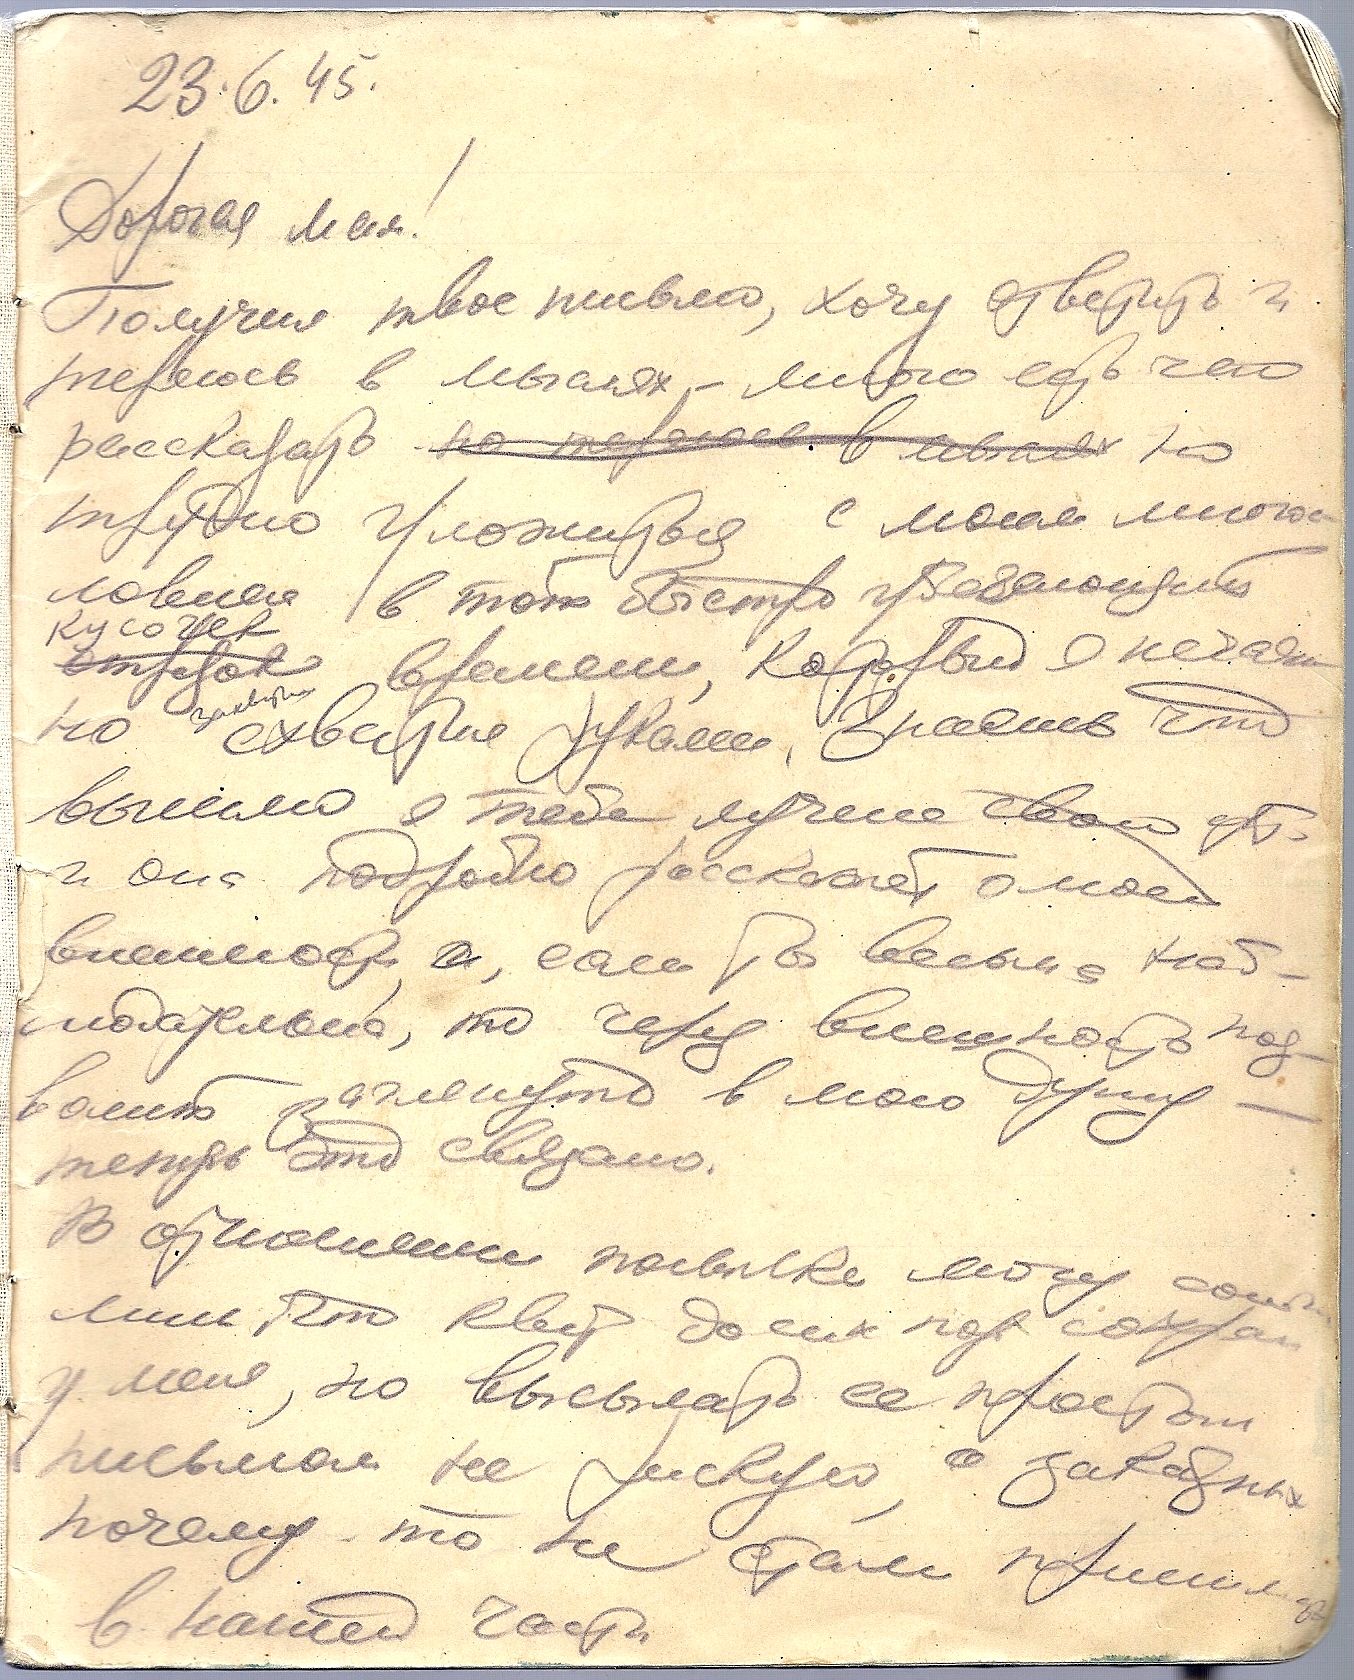 23.6.45.
Дорогая моя!
Получил твое письмо, хочу ответить и
теряюсь в мыслях, – много есть чего
рассказать но теряюсь в мыслях но
трудно уложиться с моим много
ловием в тот быстро убегающий
кусочек
отрезок времени, который я нечаян
но схватил руками. Знаешь что
вышлю я тебе лучше свою
и она подробно расскажет о моей
внешности, а, если ты весьма наб-
людательна, то через внешность поз-
волит заглянуть в мою душу —
теперь это связано.
В отношении посылки могу
что квит. до сих пор сохран
у меня, но высылать ее простым
письмом не рискую, а заказных
почему-то не стали принимать
в нашей части